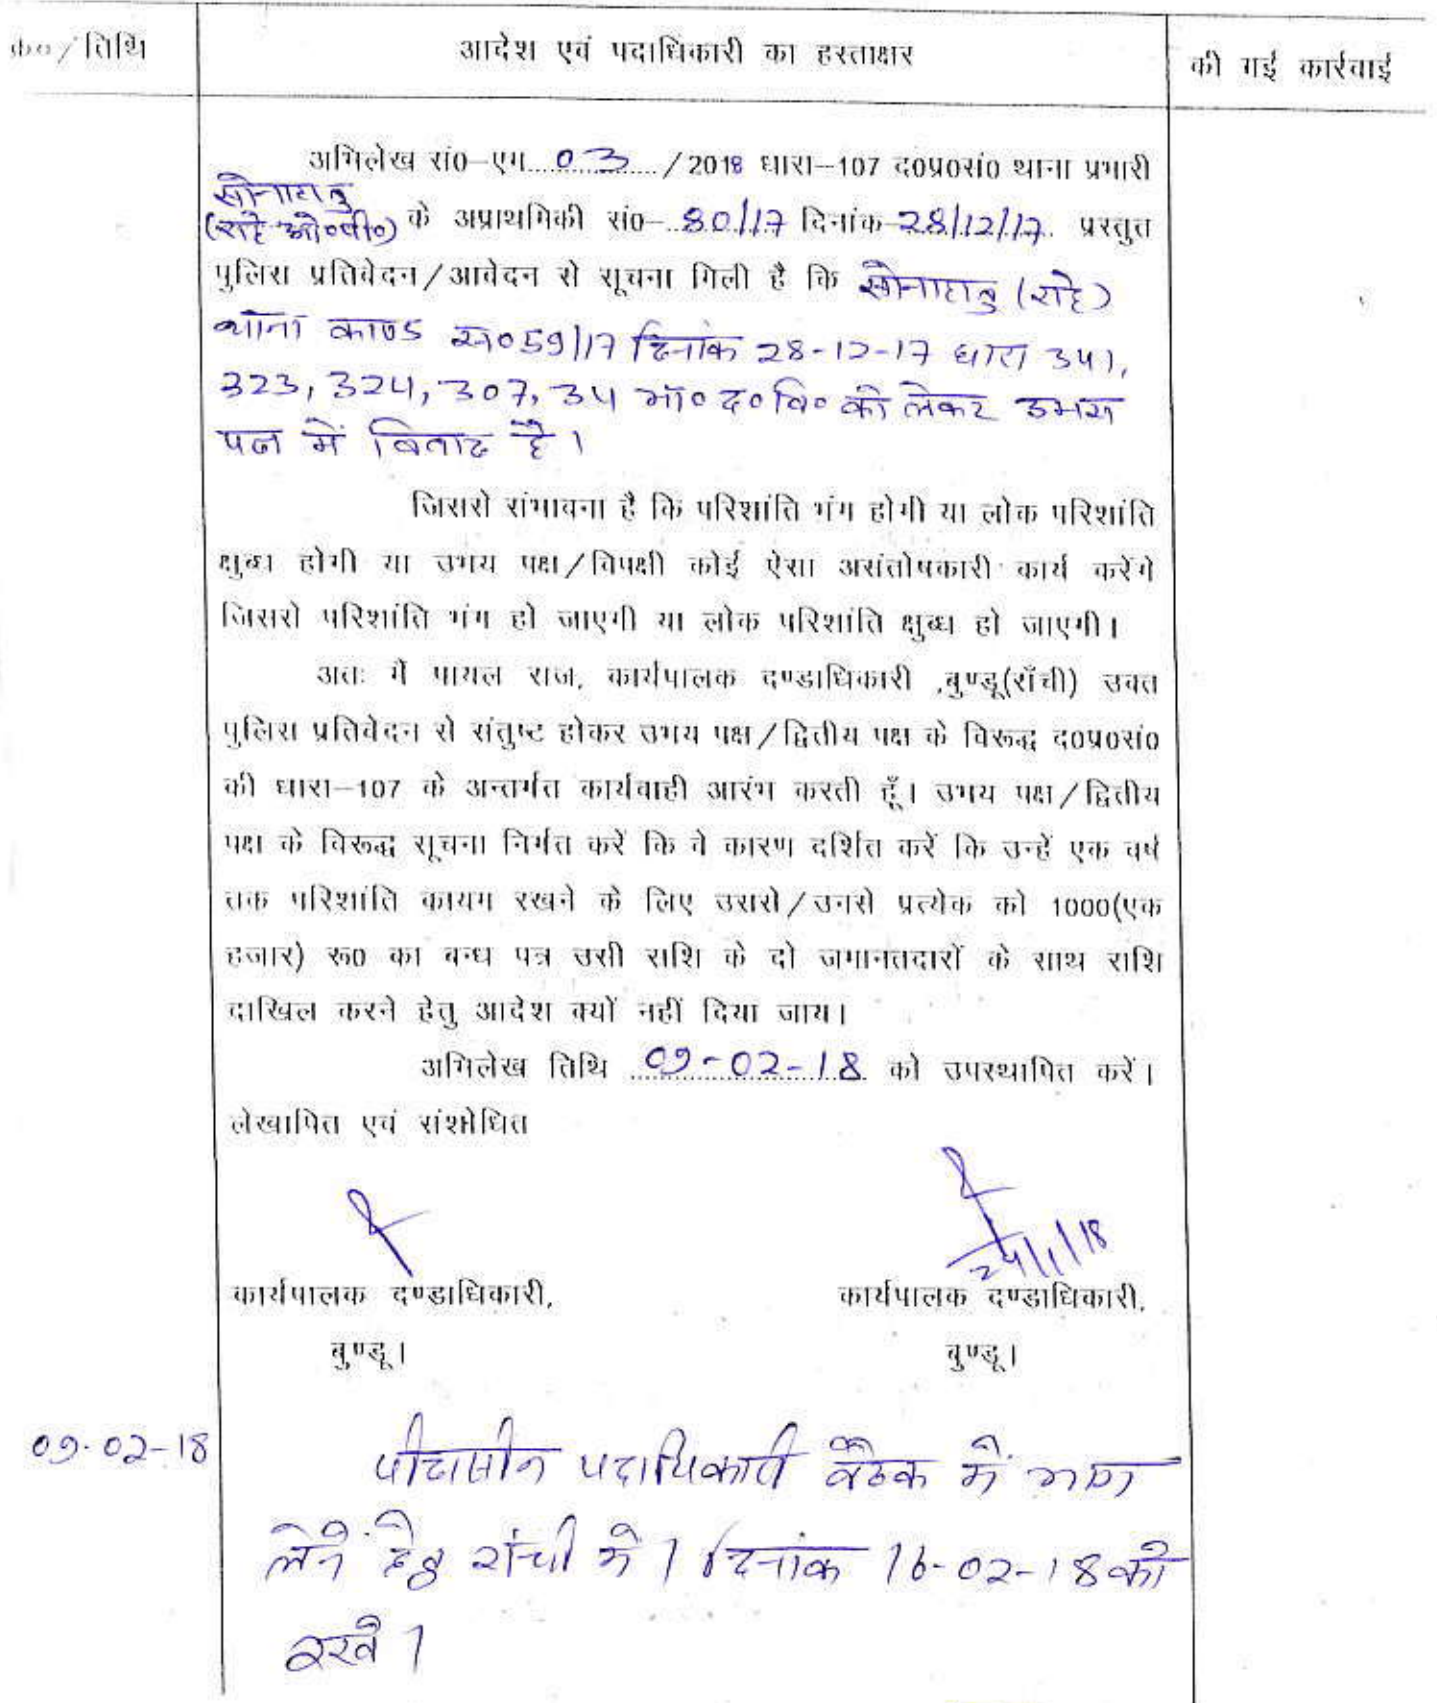 क्र०/तिथि
आदेश एवं पदाधिकारी का हस्ताक्षर
की गई कार्रवाई
अभिलेख सं०–एम...03.../2018 धारा–107 द०प्र०सं० थाना प्रभारी
सोनाहातु
(राहे ओ०पी०) के अप्राथमिकी सं०–80/17 दिनांक–28/12/17 प्रस्तुत
पुलिस प्रतिवेदन/आवेदन से सूचना मिली है कि सोनाहातु (राहे)
थाना काण्ड सं०59/17 दिनांक 28-12-17 धारा 341,
323, 324, 307, 34 भा० द० वि० को लेकर उभय
पक्ष में विवाद है।
जिससे संभावना है कि परिशांति भंग होगी या लोक परिशांति
क्षुब्ध होगी या उभय पक्ष/विपक्षी कोई ऐसा असंतोषकारी कार्य करेंगे
जिससे परिशांति भंग हो जाएगी या लोक परिशांति क्षुब्ध हो जाएगी।
अतः मैं पायल राज, कार्यपालक दण्डाधिकारी ,बुण्डू(राँची) उक्त
पुलिस प्रतिवेदन से संतुष्ट होकर उभय पक्ष/द्वितीय पक्ष के विरूद्ध द०प्र०सं०
की धारा–107 के अन्तर्गत कार्यवाही आरंभ करती हूँ। उभय पक्ष/द्वितीय
पक्ष के विरूद्ध सूचना निर्गत करें कि वे कारण दर्शित करें कि उन्हें एक वर्ष
तक परिशांति कायम रखने के लिए उससे/उनसे प्रत्येक को 1000(एक
हजार) रू० का बन्ध पत्र उसी राशि के दो जमानतदारों के साथ राशि
दाखिल करने हेतु आदेश क्यों नहीं दिया जाय।
अभिलेख तिथि 09-02-18 को उपस्थापित करें।
लेखापित एवं संशोधित
24/1/18
कार्यपालक दण्डाधिकारी,
कार्यपालक दण्डाधिकारी,
बुण्डू।
बुण्डू।
09-02-18
पीठासीन पदाधिकारी बैठक में भाग
लेने हेतु रांची में। दिनांक 16-02-18 को
रखें।